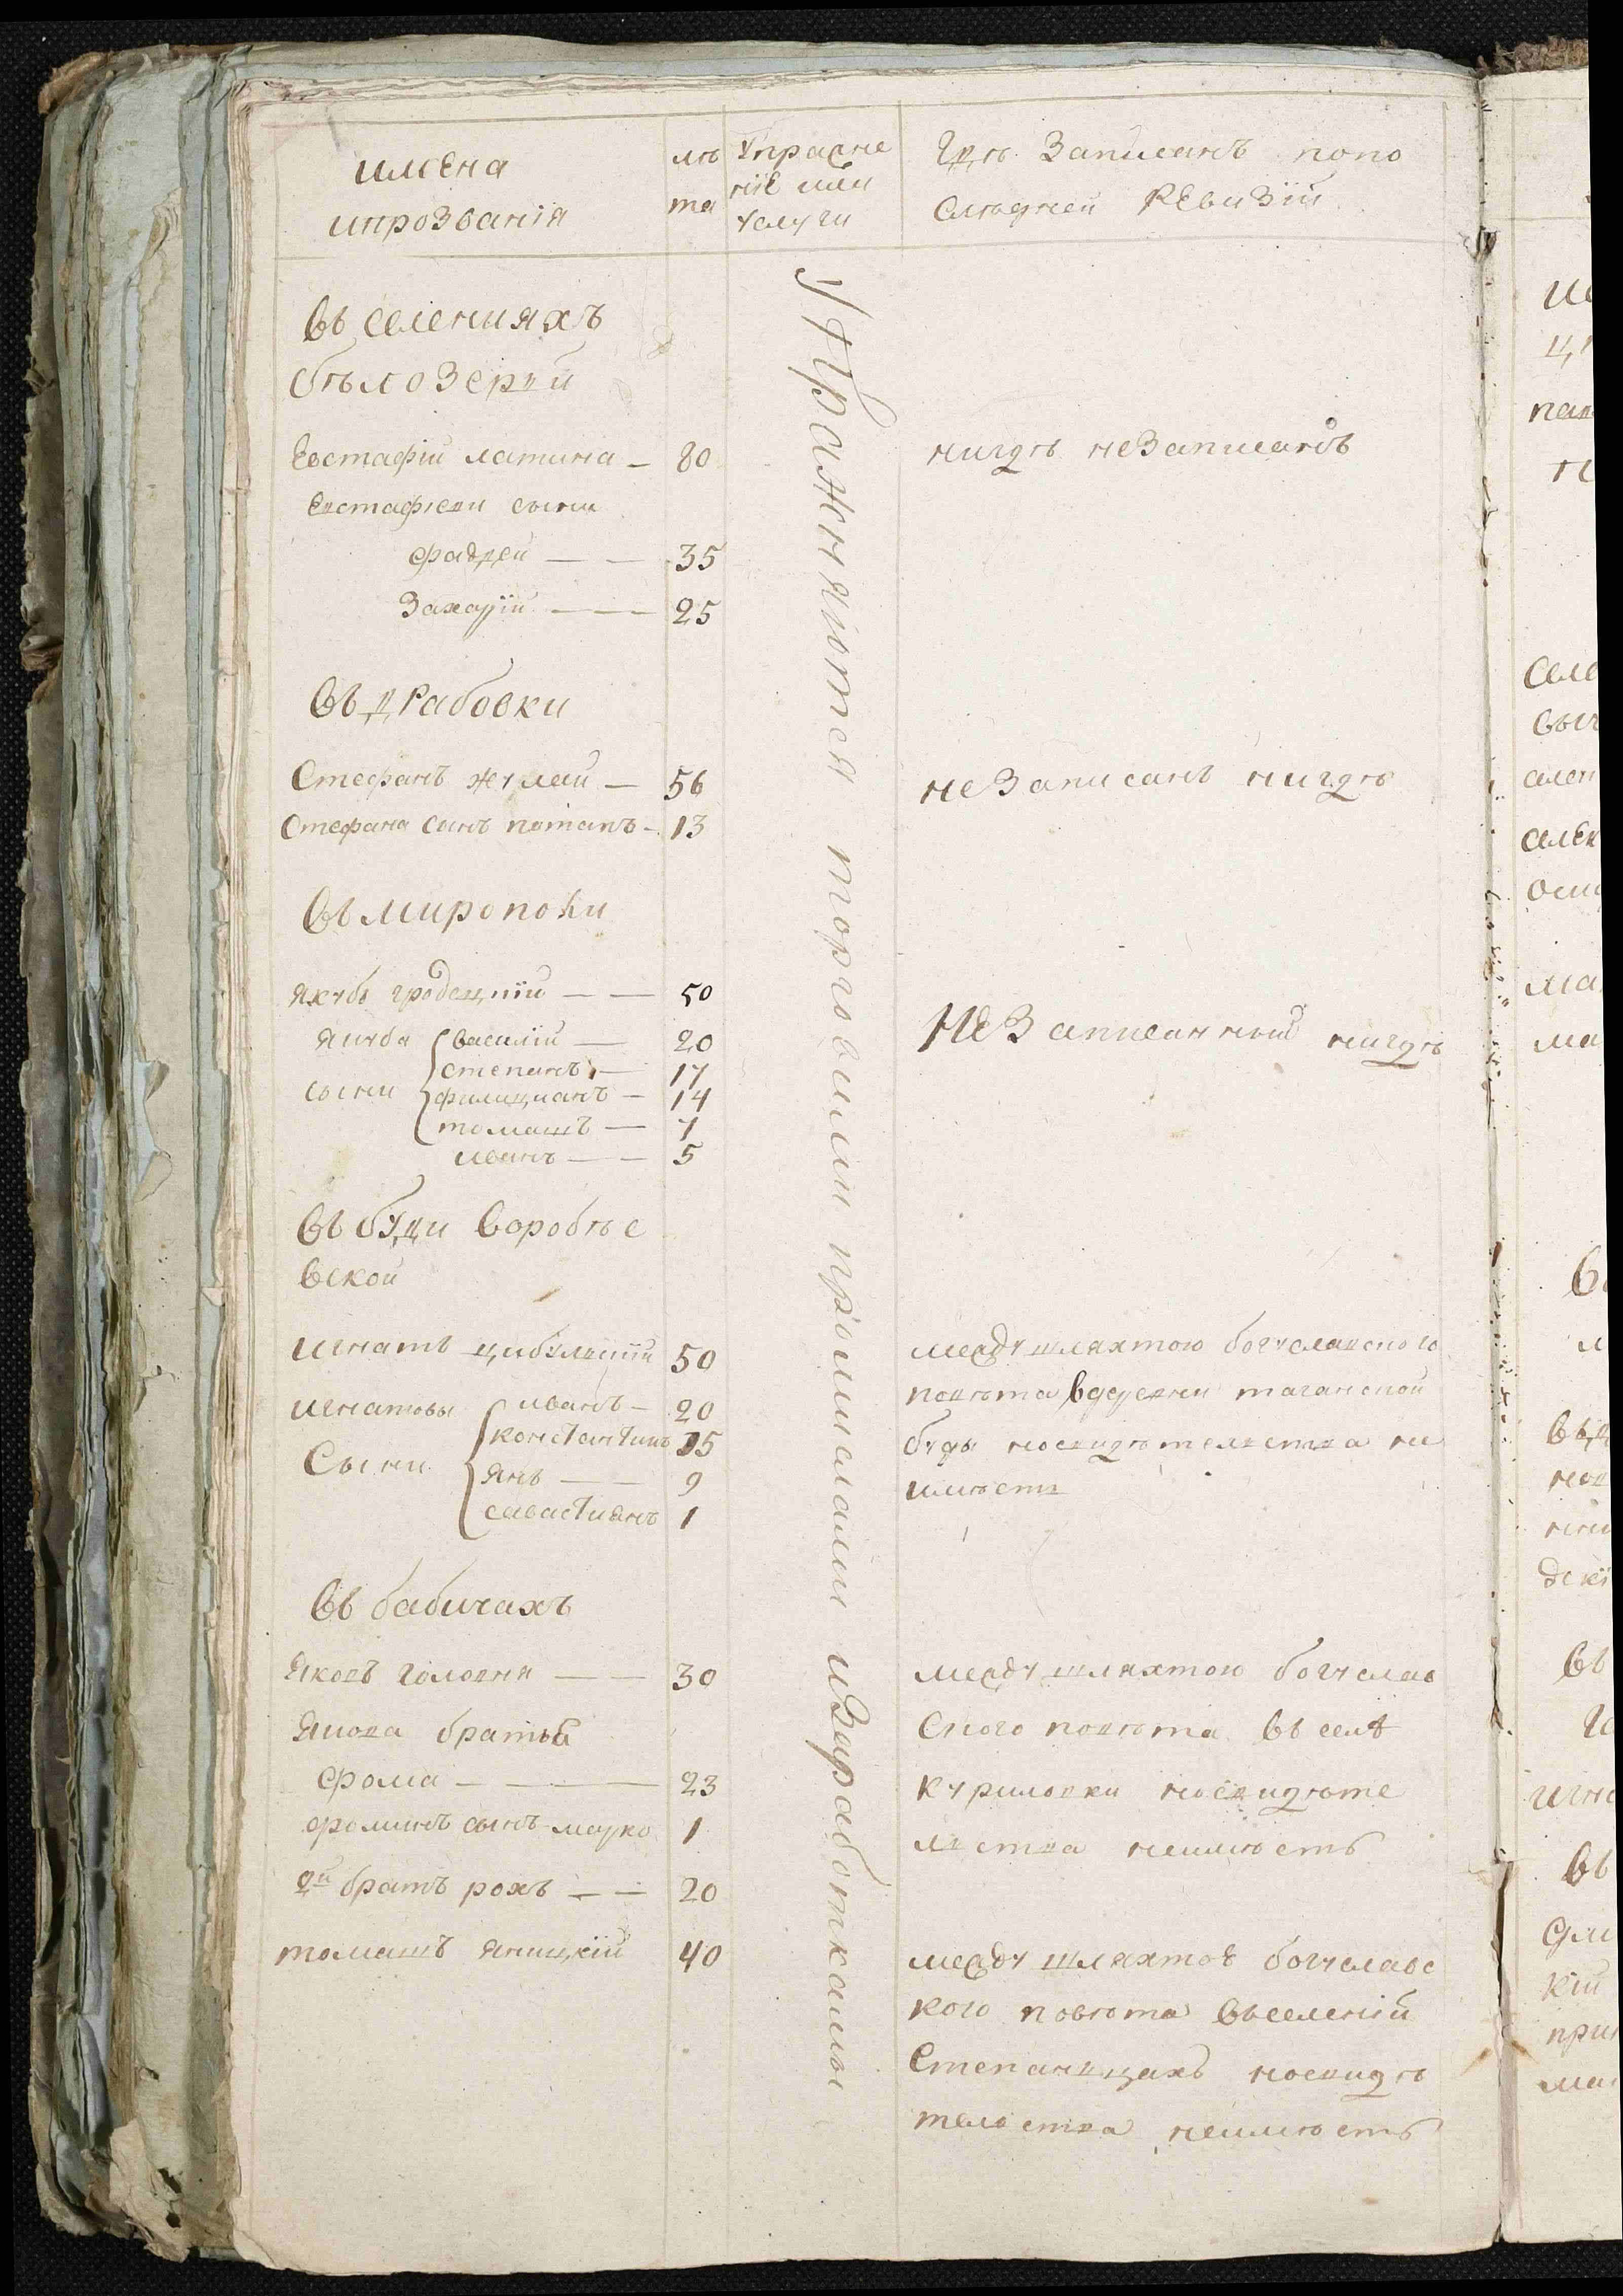 имена
ипрозванія
лѣ
та
Упражне
ніе или
услуги
Гдѣ Записанъ попо
слѣдней Ревизіи
въ селенияхъ
бѣлозерей
Евстафій латина — 80
нигдѣ не Записанъ
Евстафиеви сыни
фадей — — 35
Захарій — — — 25
въ драбовки
Стефанъ жулай — 56
не Записанъ нигдѣ
Стефана сынъ потапъ — 13
въ миропоки
якубъ гродецкій — — 50
Не Записанный нигдѣ
якуба
сыни
василій — 20
степанъ — 17
филициянъ — 14
томашъ — 7
иванъ — — 5
въ буди воробъе
вской
игнатъ цибулский 50
между шляхтою богуславского
повѣта вдеревни таганской
буды но свидѣтелства не
имѣетъ
игнатовы
Сыни
иванъ — 20
константинъ 15
янъ — — 9
савастиянъ 1
въ бабичахъ
яковъ головня — — 30
между шляхтою богуслав
ского повѣта въ селѣ
куриловки но свидѣте
лства неимѣетъ
якова братья
фома — — — 23
фоминъ сынъ марко 1
2й братъ рохъ — — 20
томашъ яницкій 40
между шляхтою богуславс
кого повѣта въселеній
Степанцахъ носвидѣ
телства неимѣетъ
Упражняются торговими промислами изаработками